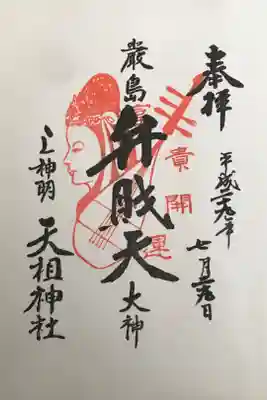 奉拝
平成二九年
七月二九日
貴
開
運
厳島
弁財天
大神
上神明
天祖神社